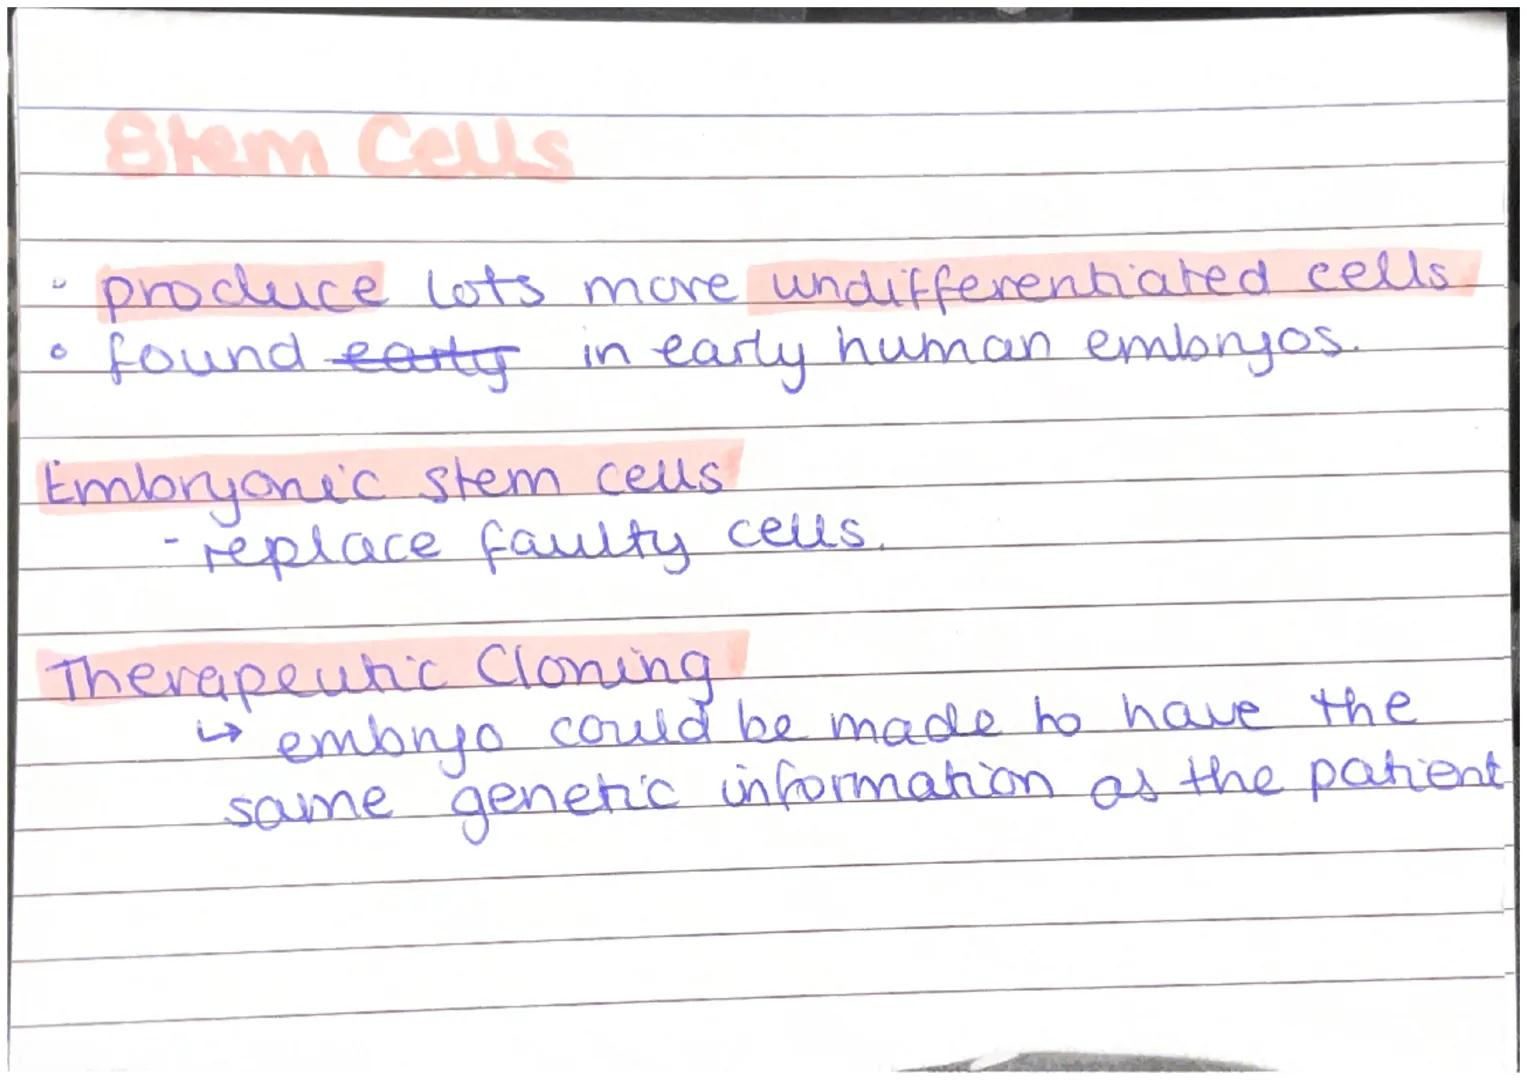 Stem Cells
• produce lots more undifferentiated cells
• found early in early human embryos.
Embryonic stem cells
- replace faulty cells.
Therapeutic Cloning
↳ embryo could be made to have the
same genetic information as the patient